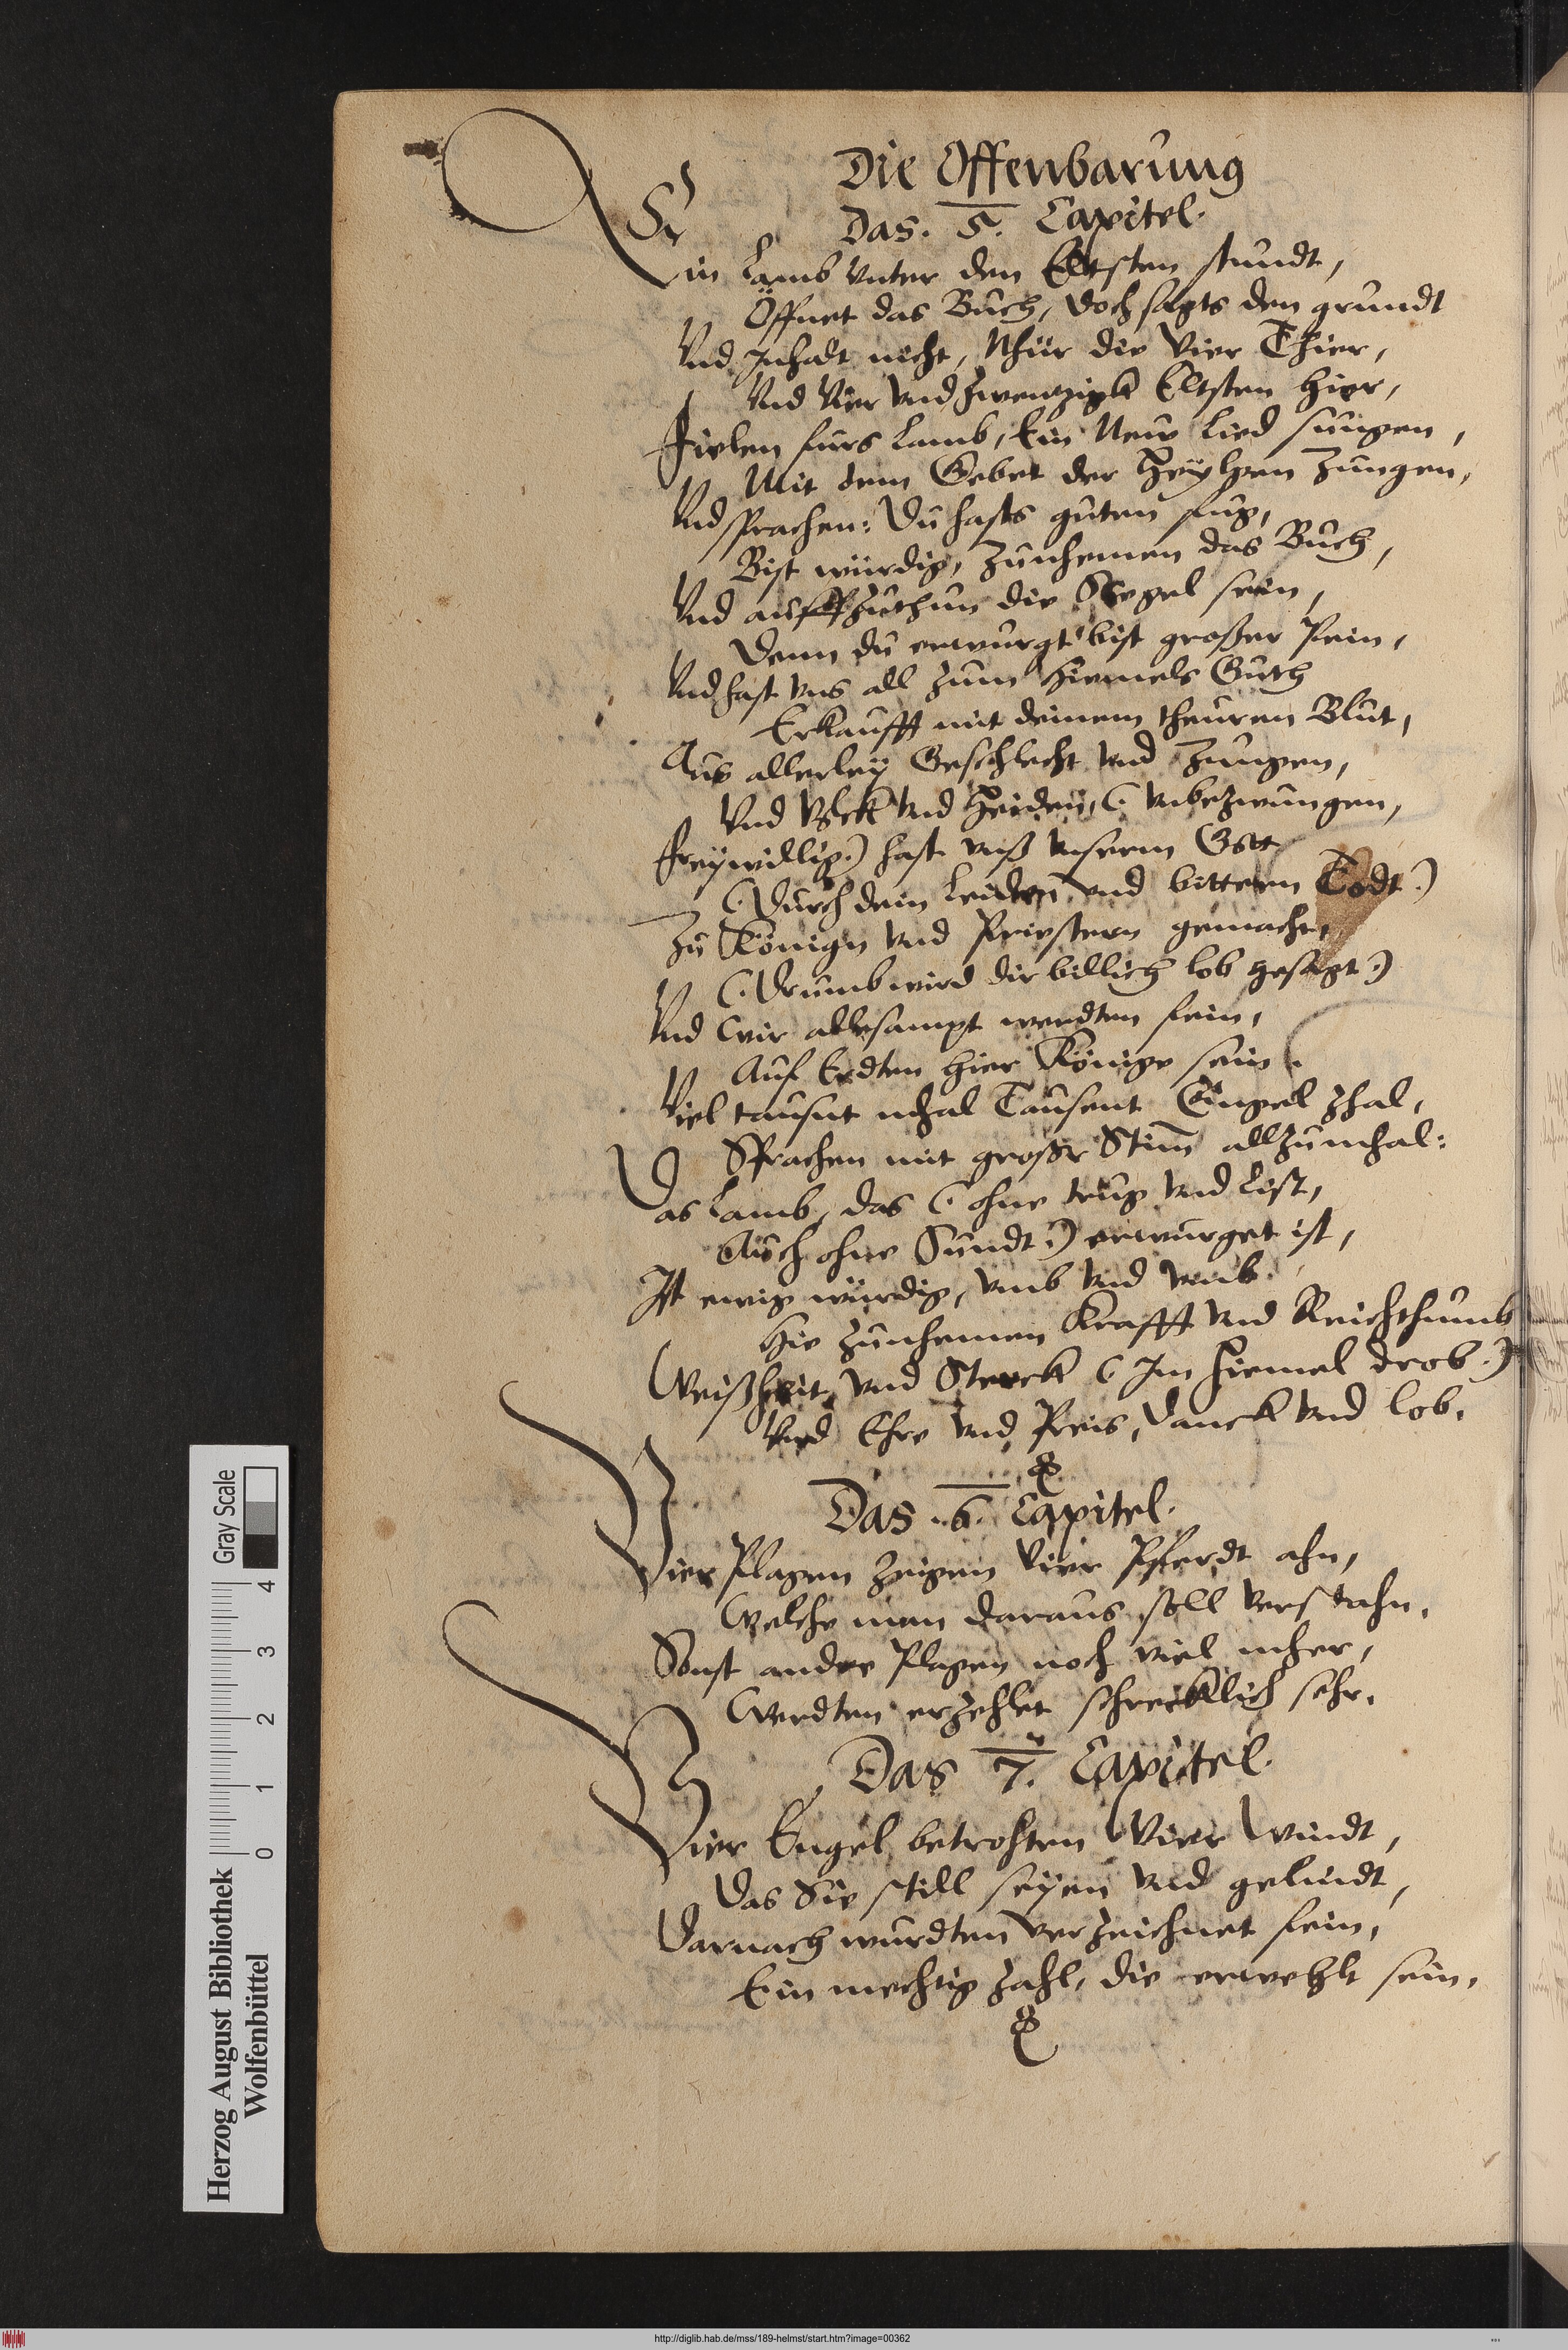 Die Offenbarung
Das. 5. Capitel.
Ein Lamb vnter den Eltsten stundt,
Öffnet das Buch, doch sagts den grundt
Vnd Inhalt nicht, Nhür die Vier Thier,
Vnd Vier vnd Zwentzigk Eltsten hier,
Fielen furs Lamb, Ein New Lied sungen,
Mit dem Gebet der Heylgen Zungen,
Vnd sprachen: Du hasts guten fug,
Bist würdig, Zunhemen das Buch,
Vnd auffZuthun die Siegel sein,
Denn du erwurgt bist großer Pein,
Vnd hast vns all zum Hiemels Guth
Erkaufft mit deinem theuren Blut,
Aus allerley Geschlecht vnd Zungen,
Vnd Volck vnd Heiden, (. vnbezwungen,
Freywillig.) hast vnß vnserm Gott
(. Durch dein Leiden vnd bittern Todt.)
Zu Könign vnd Priestern gemacht,
(. Drumb wird dir billich lob gesagt.)
Vnd wir allesampt werdten fein,
Auf Erdten hier Könige sein.
Viel tausnt mhal Tausent Engel Zhal,
Sprachen mit großr Stim̄ allzumhal:
Das Lamb, das (. ohne trug vnd List,
Auch ohne Sundt.) erwurget ist,
Ist ewig würdig, vmb vnd vmb
Hie zunhemen Krafft vnd Reichthumb
Weißheit, vnd Sterck (. Im Hiemel drob.)
Vnd Ehre vnd Preis, Danck vnd lob.
Das .6. Capitel.
Vier Plagen Zeigen Vier Pferdt ahn,
Welche man daraus soll verstahn,
Sonst andre Plagen noch viel mher,
Werdten erzehlet schrecklich sehr.
Das 7. Capitel.
Vier Engel betrohten Vier Windt,
Das Sie still seyen vnd gelindt,
Darnach wurdten verzeichnet fein,
Ein mechtig Zahl, die erwehlt sein.
Herzog August Bibliothek
Wolfenbüttel
0 1 2 3 4
Gray Scale
http://diglib.hab.de/mss/189-helmst/start.htm?image=00362